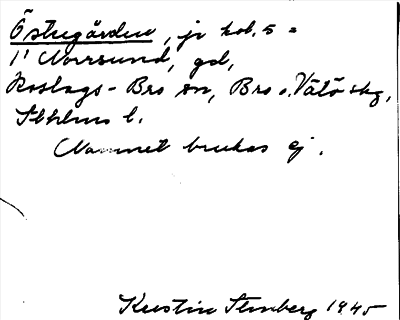 Östregården, jr kol. 5 =
1¹ Norrsund, gd,
Roslags-Bro sn, Bro o. Vätö skg,
Sthlms l.
Namnet brukas ej.
Kerstin Stenberg 1945